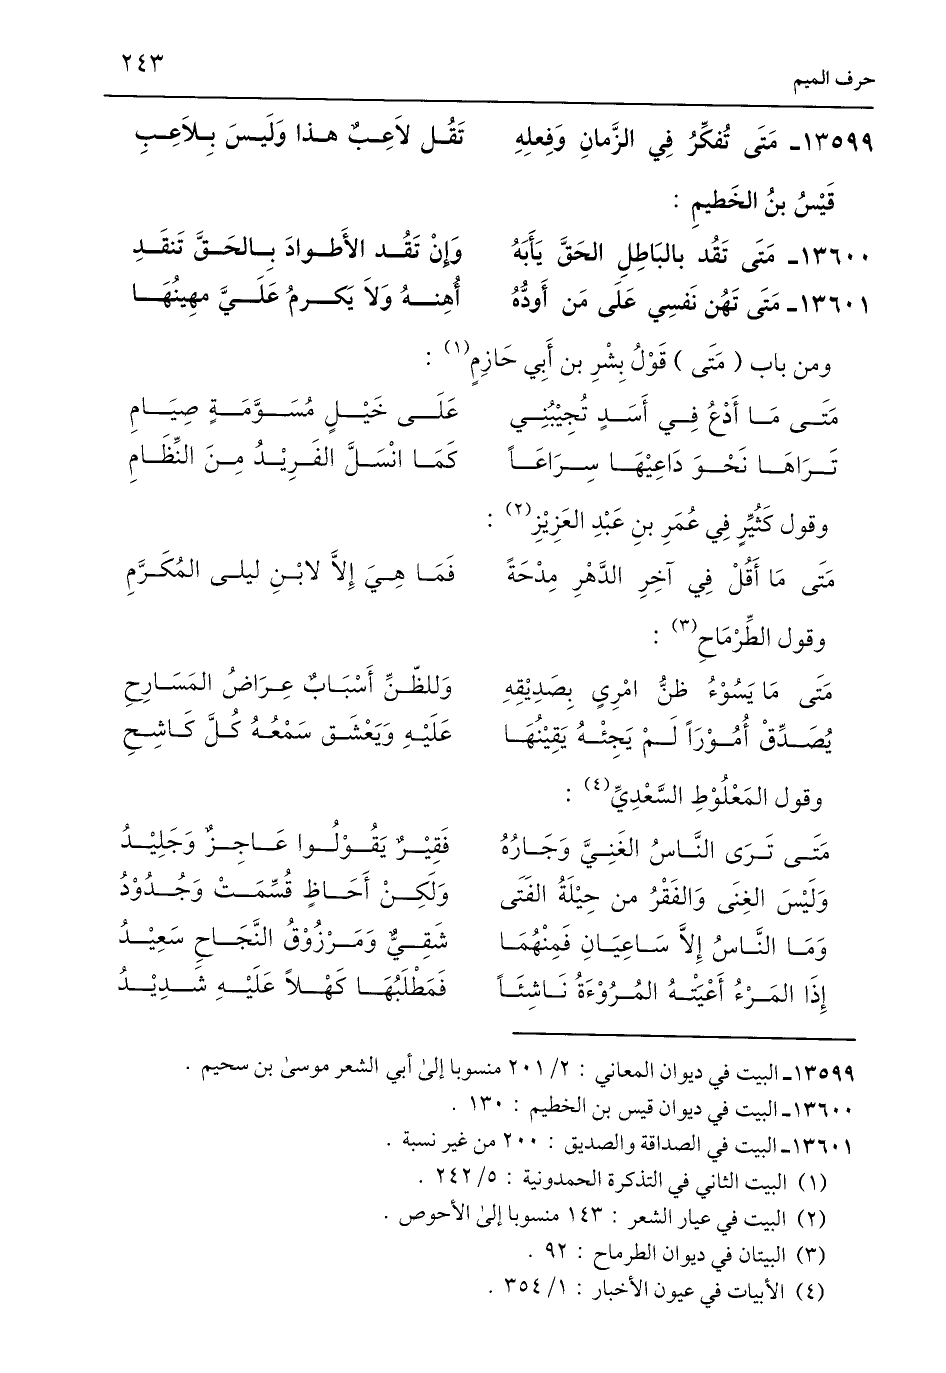 حرف الميم ٢٤٣
١٣٥٩٩ـ مَتَى تُفكِّرُ فِي الزَّمانِ وَفِعلِهِ تَقُـل لاَعِـبٌ هـذا وَلَيسَ بِـلاَعِـبِ
قَيْسُ بنُ الخَطيمِ :
١٣٦٠٠ـ مَتَى تَقُد بالبَاطِلِ الحَقَّ يَأْبَهُ وَإِنْ تَقُـد الأَطـوادَ بِـالحَـقَّ تَنقَـدِ
١٣٦٠١ـ مَتَى تَهُن نَفسِي عَلَى مَن أَودُّهُ أُهِنـهُ وَلاَ يَكـرمُ عَلَـيَّ مهِينُهَـا
ومن باب ( مَتَى ) قَوْلُ بِشْرِ بن أَبي حَازِمٍ(١) :
مَتَـى مَـا أَدْعُ فِـي أَسَـدٍ تُجِيْبُنِـي عَلَـى خَيْـلٍ مُسَـوَّمَـةٍ صِيَـامِ
تَـرَاهَـا نَحْـوَ دَاعِيْهَـا سِـرَاعَـاً كَمَـا انْسَـلَّ الفَـرِيْـدُ مِـنَ النِّظَـامِ
وقول كَثُيِّرٍ فِي عُمَرِ بنِ عَبْدِ العَزِيْزِ(٢) :
مَتَى مَا أَقُلْ فِي آخِرِ الدَّهْرِ مِدْحَةً فَمَـا هِـيَ إِلاَّ لابْـنِ ليلـى المُكَـرَّمِ
وقول الطِّرْمَاحِ(٣) :
مَتَى مَا يَسُوْءُ ظنُّ امْرِي بِصَدِيْقِهِ وَللظَّـنِّ أَسْبَـابٌ عِـرَاضُ المَسَـارِحِ
يُصَـدِّقْ أُمُـوْرَاً لَـمْ يَجِئْـهُ يَقِيْنُهَـا عَلَيْـهِ وَيَعْشَـق سَمْعُـهُ كُـلَّ كَـاشِـحِ
وقول المَعْلُوْطِ السَّعْدِيِّ(٤) :
مَتَـى تَـرَى النَّـاسُ الغَنِـيَّ وَجَـارُهُ فَقِيْـرٌ يَقُـوْلُـوا عَـاجِـزٌ وَجَلِيْـدُ
وَلَيْسَ الغِنَى وَالفَقْرُ من حِيْلَةُ الفَتَى وَلَكِـنْ أَحَـاظٍ قُسِّمَـتْ وَجُـدُوْدُ
وَمَـا النَّـاسُ إِلاَّ سَـاعِيَـانِ فَمِنْهُمَـا شَقِـيٌّ وَمَـرْزُوْقُ النَّجَـاحِ سَعِيْـدُ
إِذَا المَـرْءُ أَعْيَتـهُ المُـرُوْءَةُ نَـاشِئَـاً فَمَطْلَبُهَـا كَهْـلاً عَلَيْـهِ شَـدِيْـدُ
١٣٥٩٩ـ البيت في ديوان المعاني : ٢/ ٢٠١ منسوبا إلىٰ أبي الشعر موسىٰ بن سحيم .
١٣٦٠٠ـ البيت في ديوان قيس بن الخطيم : ١٣٠ .
١٣٦٠١ـ البيت في الصداقة والصديق : ٢٠٠ من غير نسبة .
(١) البيت الثاني في التذكرة الحمدونية : ٥/ ٢٤٢ .
(٢) البيت في عيار الشعر : ١٤٣ منسوبا إلىٰ الأحوص .
(٣) البيتان في ديوان الطرماح : ٩٢ .
(٤) الأبيات في عيون الأخبار : ١/ ٣٥٤ .